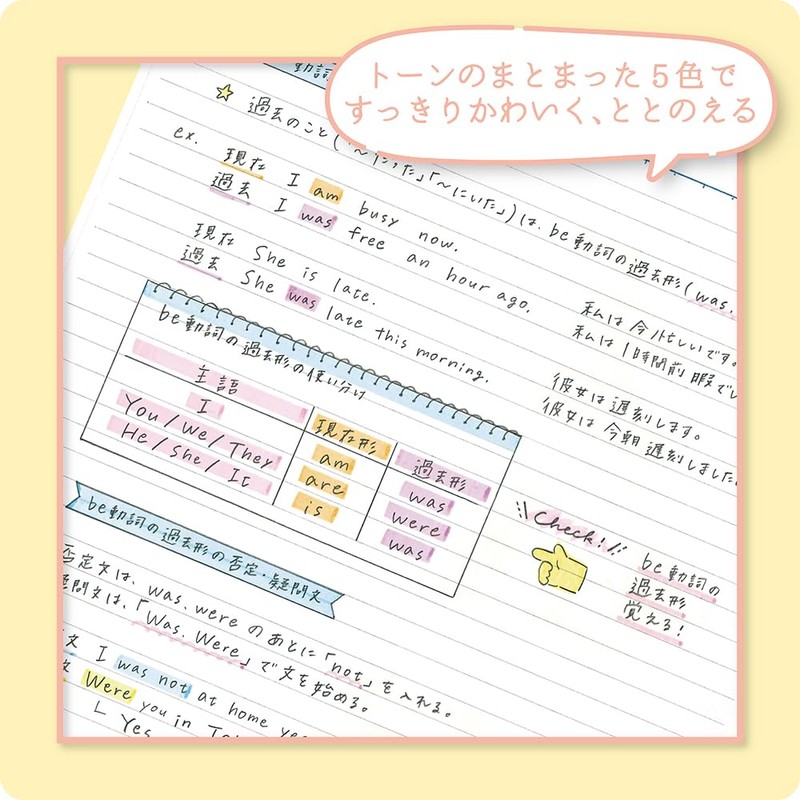 トーンのまとまった5色で
すっきりかわいく、ととのえる
動詞
☆ 過去のこと(「〜だった」「〜にいた」)は、be動詞の過去形(was.
ex. 現在 I am busy now.
過去 I was free an hour ago.
私は今忙しいです。
私は1時間前暇でし
現在 She is late.
過去 She was late this morning.
彼女は遅刻します。
彼女は今朝遅刻しました
be動詞の過去形の使い分け
主語 現在形 過去形
I am was
You/We/They are were
He/She/It is was
Check!
be動詞の
過去形
覚える!
be動詞の過去形の否定・疑問文
否定文は、was, were のあとに「not」を入れる。
疑問文は、「Was, Were」で文を始める。
文 I was not at home yes
文 Were you in
Yes